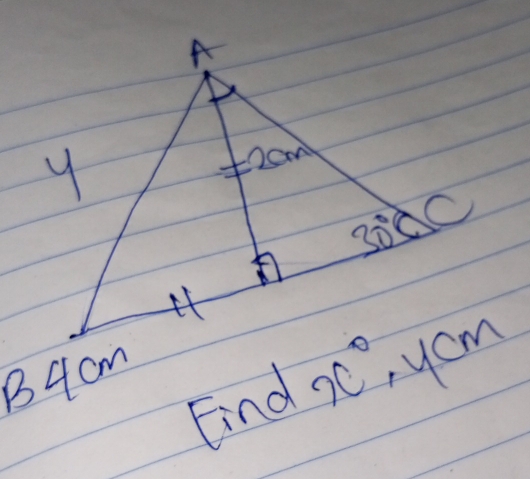 A
y
2cm
30°
C
B 4cm
Find x°, ycm